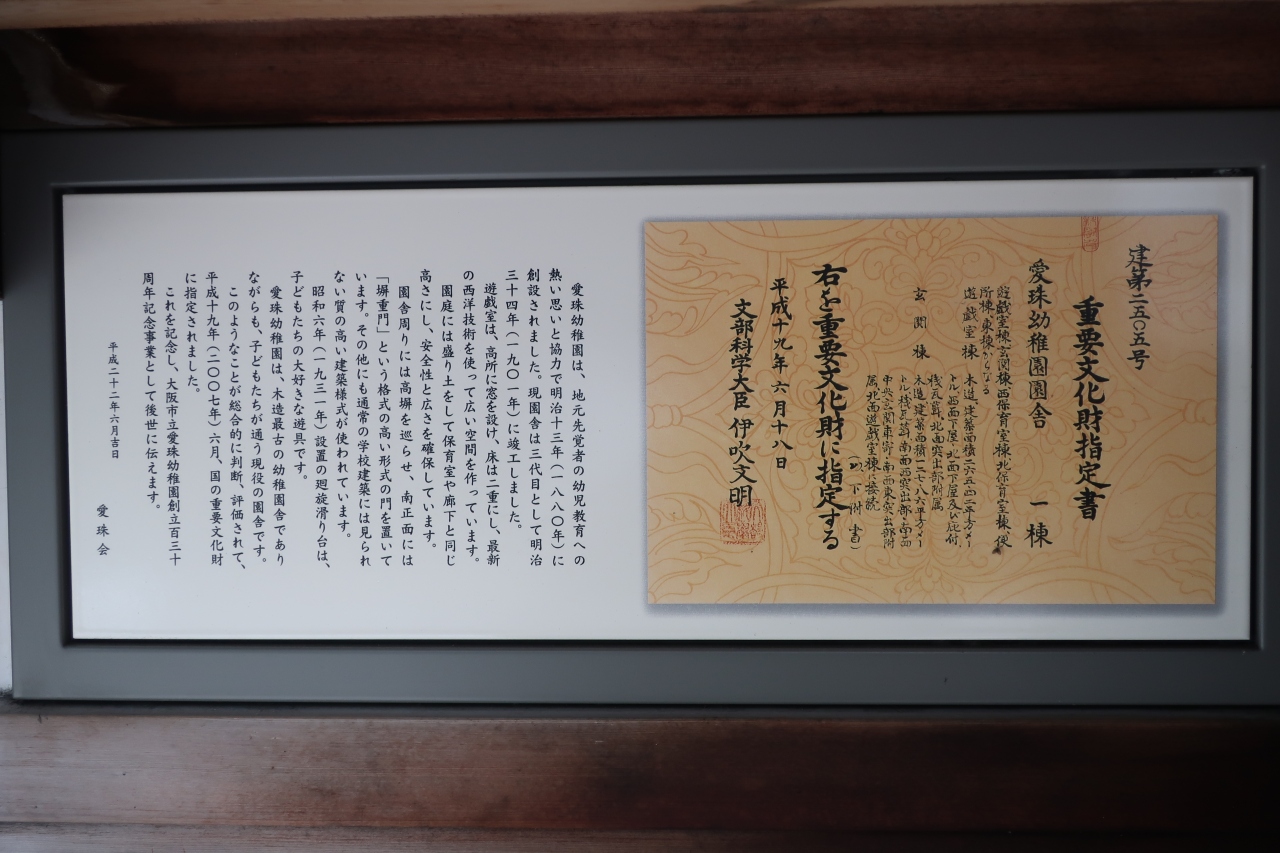 建第二五〇五号
重要文化財指定書
愛珠幼稚園園舎 一棟
遊戯室棟、玄関棟、西保育室棟、北保育室棟、便
所棟、東棟からなる
遊戯室棟
木造、建築面積二六五・四二平方メー
トル、西面下屋、北面下屋及び庇付、
桟瓦葺、北面突出部附属
玄関棟
木造、建築面積一二七・八六平方メー
トル、桟瓦葺、南面西突出部、南面
中央玄関車寄、南面東突出部附
属、北西遊戯室棟に接続
(以下附書)
右を重要文化財に指定する
平成十九年六月十八日
文部科学大臣 伊吹文明
愛珠幼稚園は、地元先覚者の幼児教育への
熱い思いと協力で明治十三年(一八八〇年)に
創設されました。現園舎は三代目として明治
三十四年(一九〇一年)に竣工しました。
遊戯室は、高所に窓を設け、床は二重にし、最新
の西洋技術を使って広い空間を作っています。
園庭には盛り土をして保育室や廊下と同じ
高さにし、安全性と広さを確保しています。
園舎周りには高塀を巡らせ、南正面には
「塀重門」という格式の高い形式の門を置いて
います。その他にも通常の学校建築には見られ
ない質の高い建築様式が使われています。
昭和六年(一九三一年)設置の廻旋滑り台は、
子どもたちの大好きな遊具です。
愛珠幼稚園は、木造最古の幼稚園舎であり
ながらも、子どもたちが通う現役の園舎です。
このようなことが総合的に判断、評価されて、
平成十九年(二〇〇七年)六月、国の重要文化財
に指定されました。
これを記念し、大阪市立愛珠幼稚園創立百三十
周年記念事業として後世に伝えます。
平成二十二年六月吉日
愛珠会